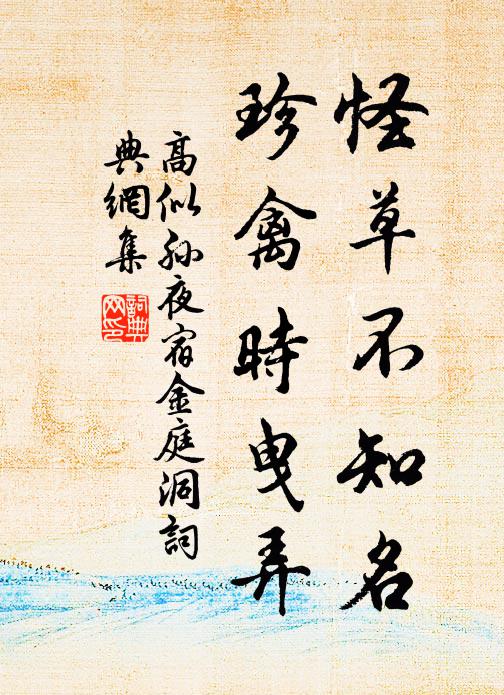 怪草不知名
珍禽時曳弄
高似孙夜宿金庭洞詞
典網集
詞典网印